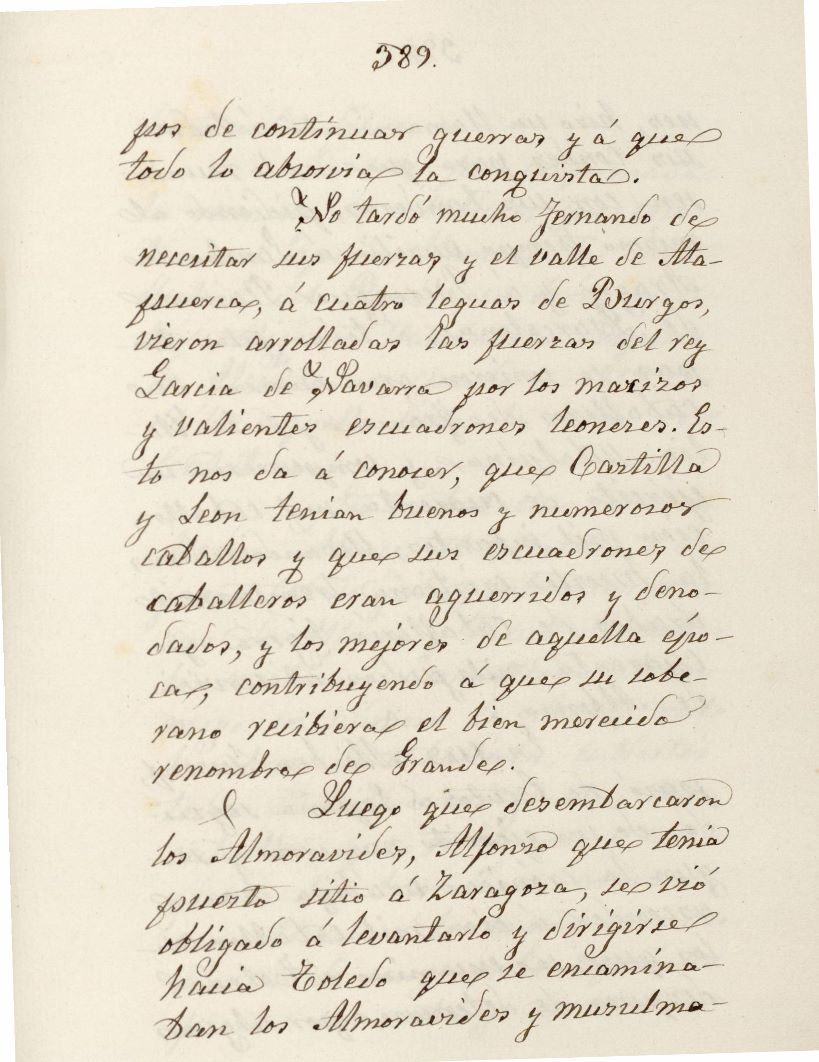 389.
pos de continuar guerras y á que
todo lo absorvia la conquista.
No tardó mucho Fernando de
necesitar sus fuerzas y el valle de Ata-
puerca, á cuatro leguas de Burgos,
vieron arrolladas las fuerzas del rey
Garcia de Navarra por los macizos
y valientes escuadrones leoneses. Es-
to nos da á conocer, que Castilla
y Leon tenian buenos y numerosos
caballos y que sus escuadrones de
caballeros eran aguerridos y deno-
dados, y los mejores de aquella épo-
ca, contribuyendo á que su sobe-
rano recibiera el bien merecido
renombre de Grande.
Luego que desembarcaron
los Almoravides, Alfonso que tenia
puesto sitio á Zaragoza, se vió
obligado á levantarlo y dirigirse
hacia Toledo que se encamina-
ban los Almoravides y musulma-